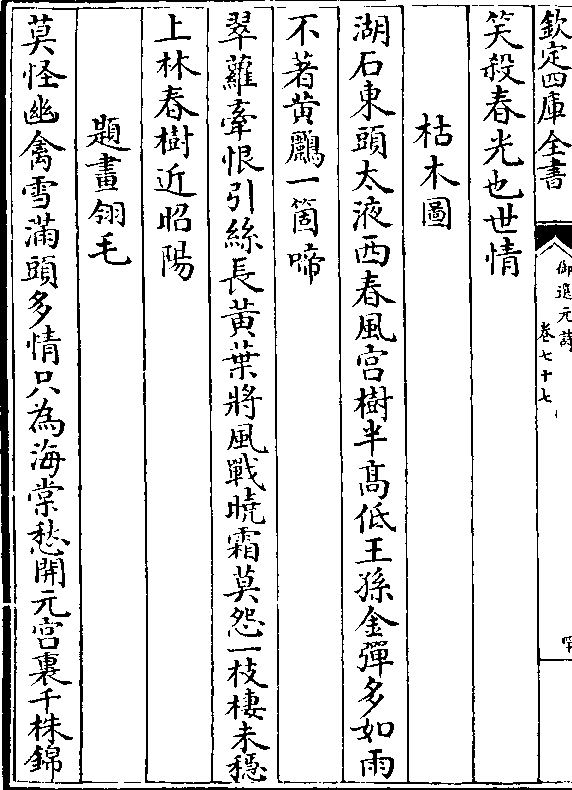 欽定四庫全書
御選元詩
卷七十七
笑殺春光也世情
枯木圖
湖石東頭太液西春風宫樹半髙低王孫金彈多如雨
不著黄鸝一箇啼
翠蘿牽恨引絲長黄葉將風戰曉霜莫怨一枝棲未穩
上林春樹近昭陽
題畫翎毛
莫怪幽禽雪滿頭多情只為海棠愁開元宫裏千株錦